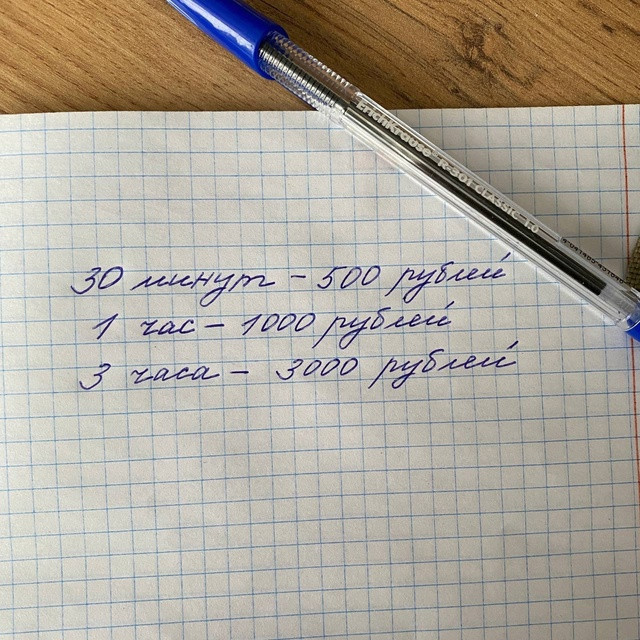 ErichKrause R-301 CLASSIC 1.0
30 минут – 500 рублей
1 час – 1000 рублей
3 часа – 3000 рублей